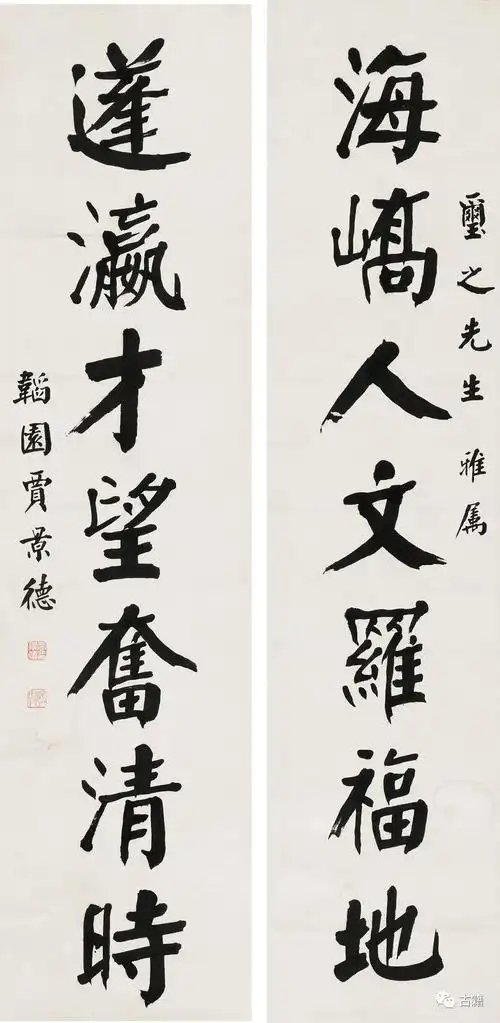 璽之先生雅属
海嶠人文羅福地
蓬瀛才望奮清時
韜園賈景德
古籍